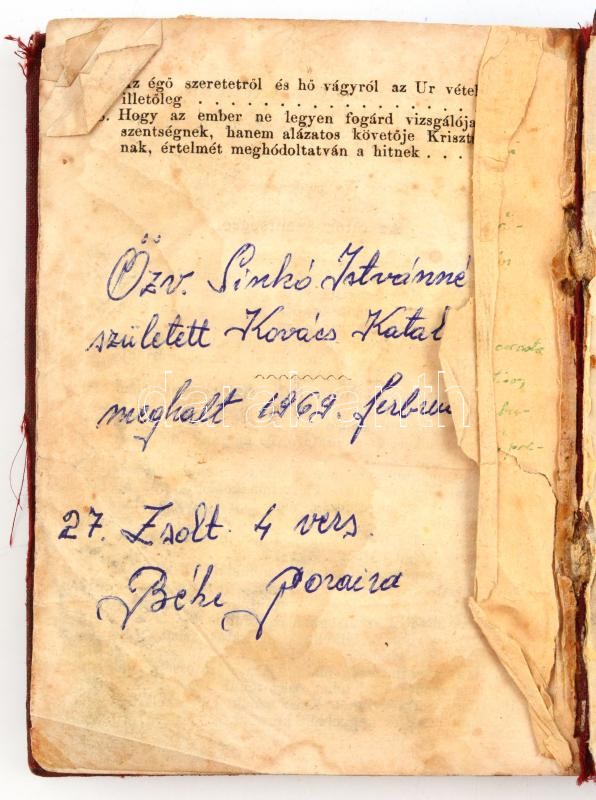 Az égő szeretetről és hő vágyról az Ur vétel
illetőleg . . . . . . . . . . . . . . . . . .
Hogy az ember ne legyen fogárd vizsgálója
szentségnek, hanem alázatos követője Kriszt
nak, értelmét meghódoltatván a hitnek . . .
Özv. Sinkó Istvánné
született Kovács Katal
meghalt 1969. febru
27. Zsolt. 4 vers.
Béke Poraira
darabanth